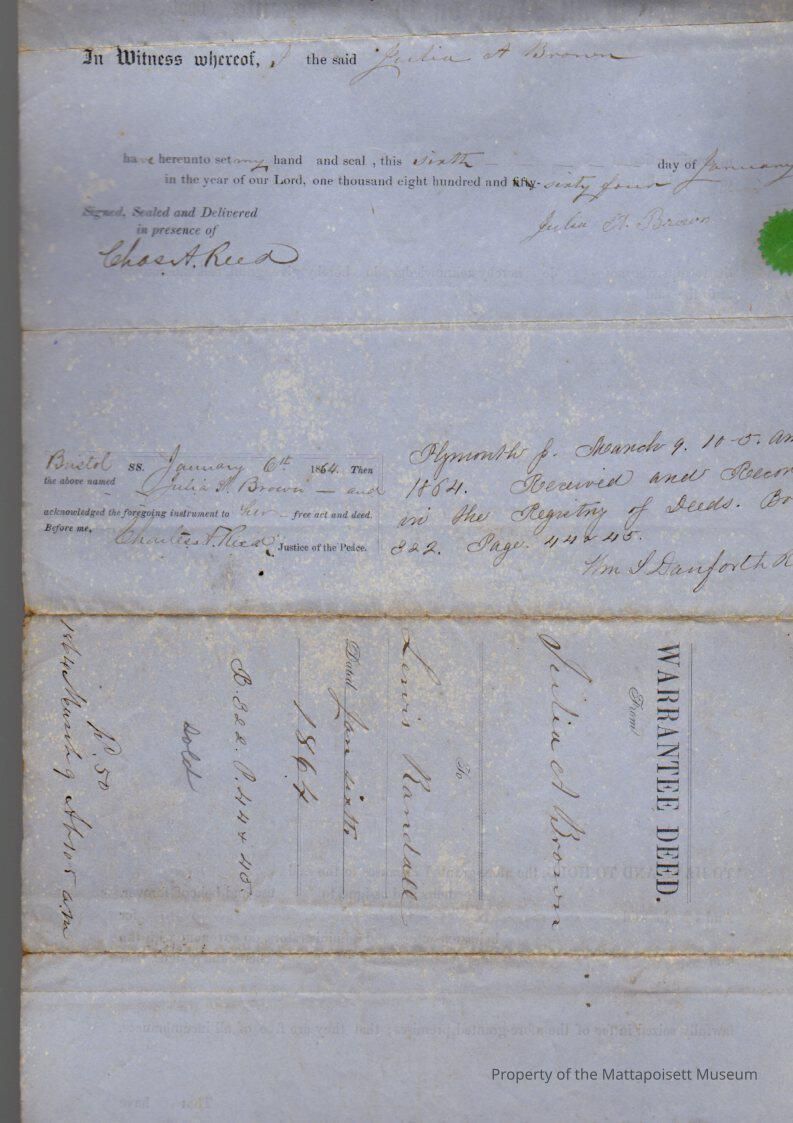 In Witness whereof, I the said Julia A Brown
have hereunto set my hand and seal, this sixth day of January
in the year of our Lord, one thousand eight hundred and fifty- sixty four
Signed, Sealed and Delivered
in presence of
Julia A. Brown
Chas A. Reed
Bristol SS. January 6th 1864. Then
the above named Julia A. Brown — and
acknowledged the foregoing instrument to her free act and deed.
Before me, Charles A. Reed Justice of the Peace.
Plymouth ss. March 9. 10-5. am
1864. Received and Recor
in the Registry of Deeds. Bo
322. Page. 44 & 45.
Wm S Danforth R
WARRANTEE DEED.
From
Julia A Brown
To
Lewis Randall
Dated Jan sixth
1864
B. 322. P. 44 & 45.
Sold
No. 50
1864 March 9 At 10 5 am
Property of the Mattapoisett Museum